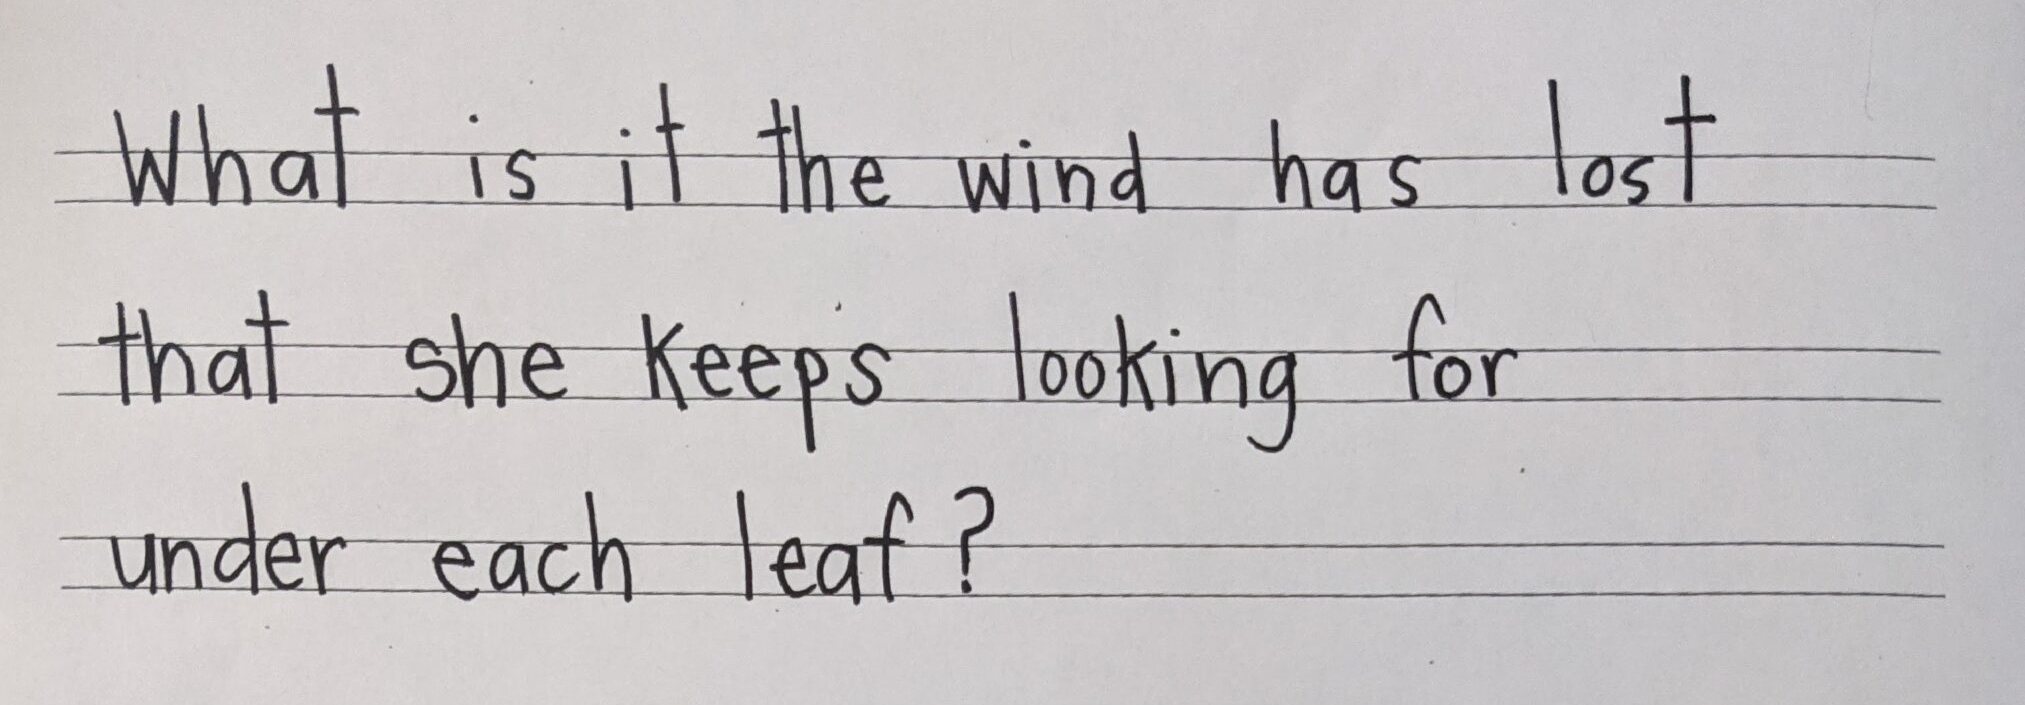 What is it the wind has lost
that she keeps looking for
under each leaf?